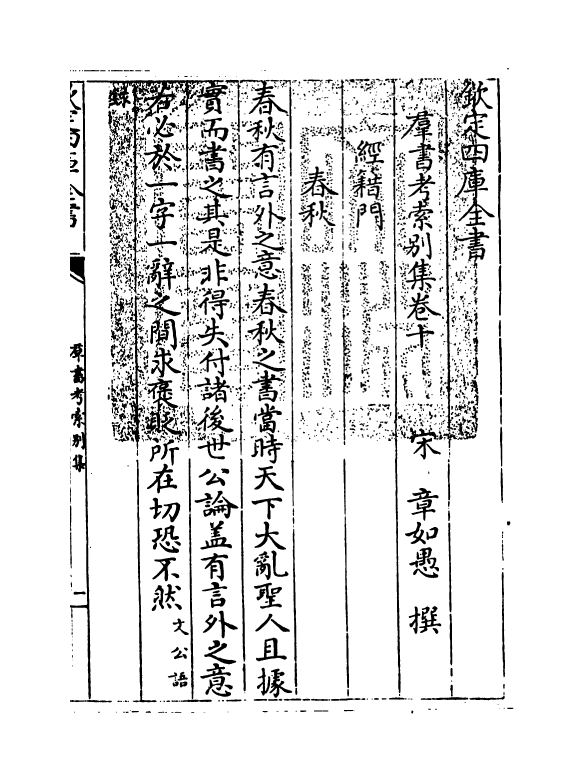 欽定四庫全書
羣書考索別集卷十
宋 章如愚 撰
經籍門
春秋
春秋有言外之意春秋之書當時天下大亂聖人且據
實而書之其是非得失付諸後世公論盖有言外之意
若必於一字一辭之間求褒貶所在切恐不然
文公語
錄
欽定四庫全書
羣書考索別集